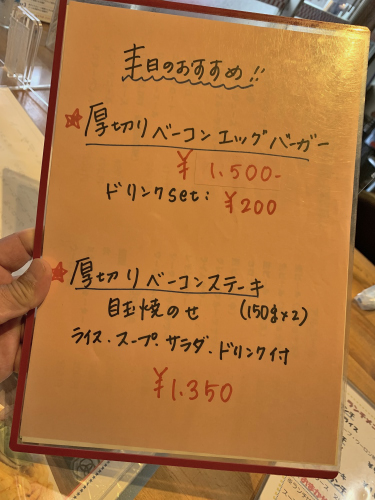 本日のおすすめ!!
★厚切りベーコンエッグバーガー
¥1,500-
ドリンクset: ¥200
★厚切りベーコンステーキ
目玉焼のせ (150g×2)
ライス・スープ・サラダ・ドリンク付
¥1,350